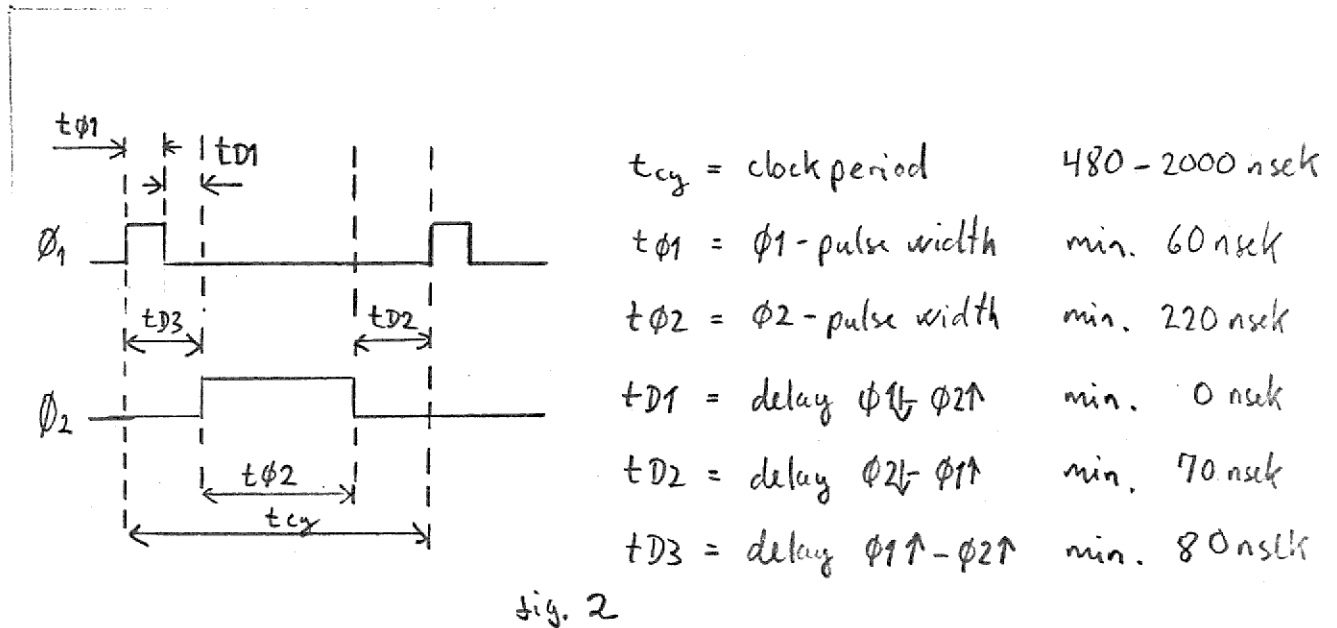 tø1
tD1
ø1
tD3
tD2
ø2
tø2
tcy
tcy = clock period 480-2000 nsek
tø1 = ø1-pulse width min. 60 nsek
tø2 = ø2-pulse width min. 220 nsek
tD1 = delay ø1↓- ø2↑ min. 0 nsek
tD2 = delay ø2↓- ø1↑ min. 70 nsek
tD3 = delay ø1↑-ø2↑ min. 80 nsek
fig. 2